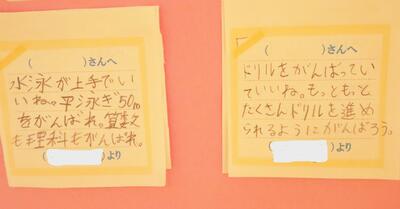 (　　　)さんへ
水泳が上手でい
いね。平泳ぎ50m
をがんばれ。算数
も理科もがんばれ。
(　　　)より
(　　　)さんへ
ドリルをがんばってい
ていいね。もっともっと
たくさんドリルを進め
られるようにがんばろう。
(　　　)より